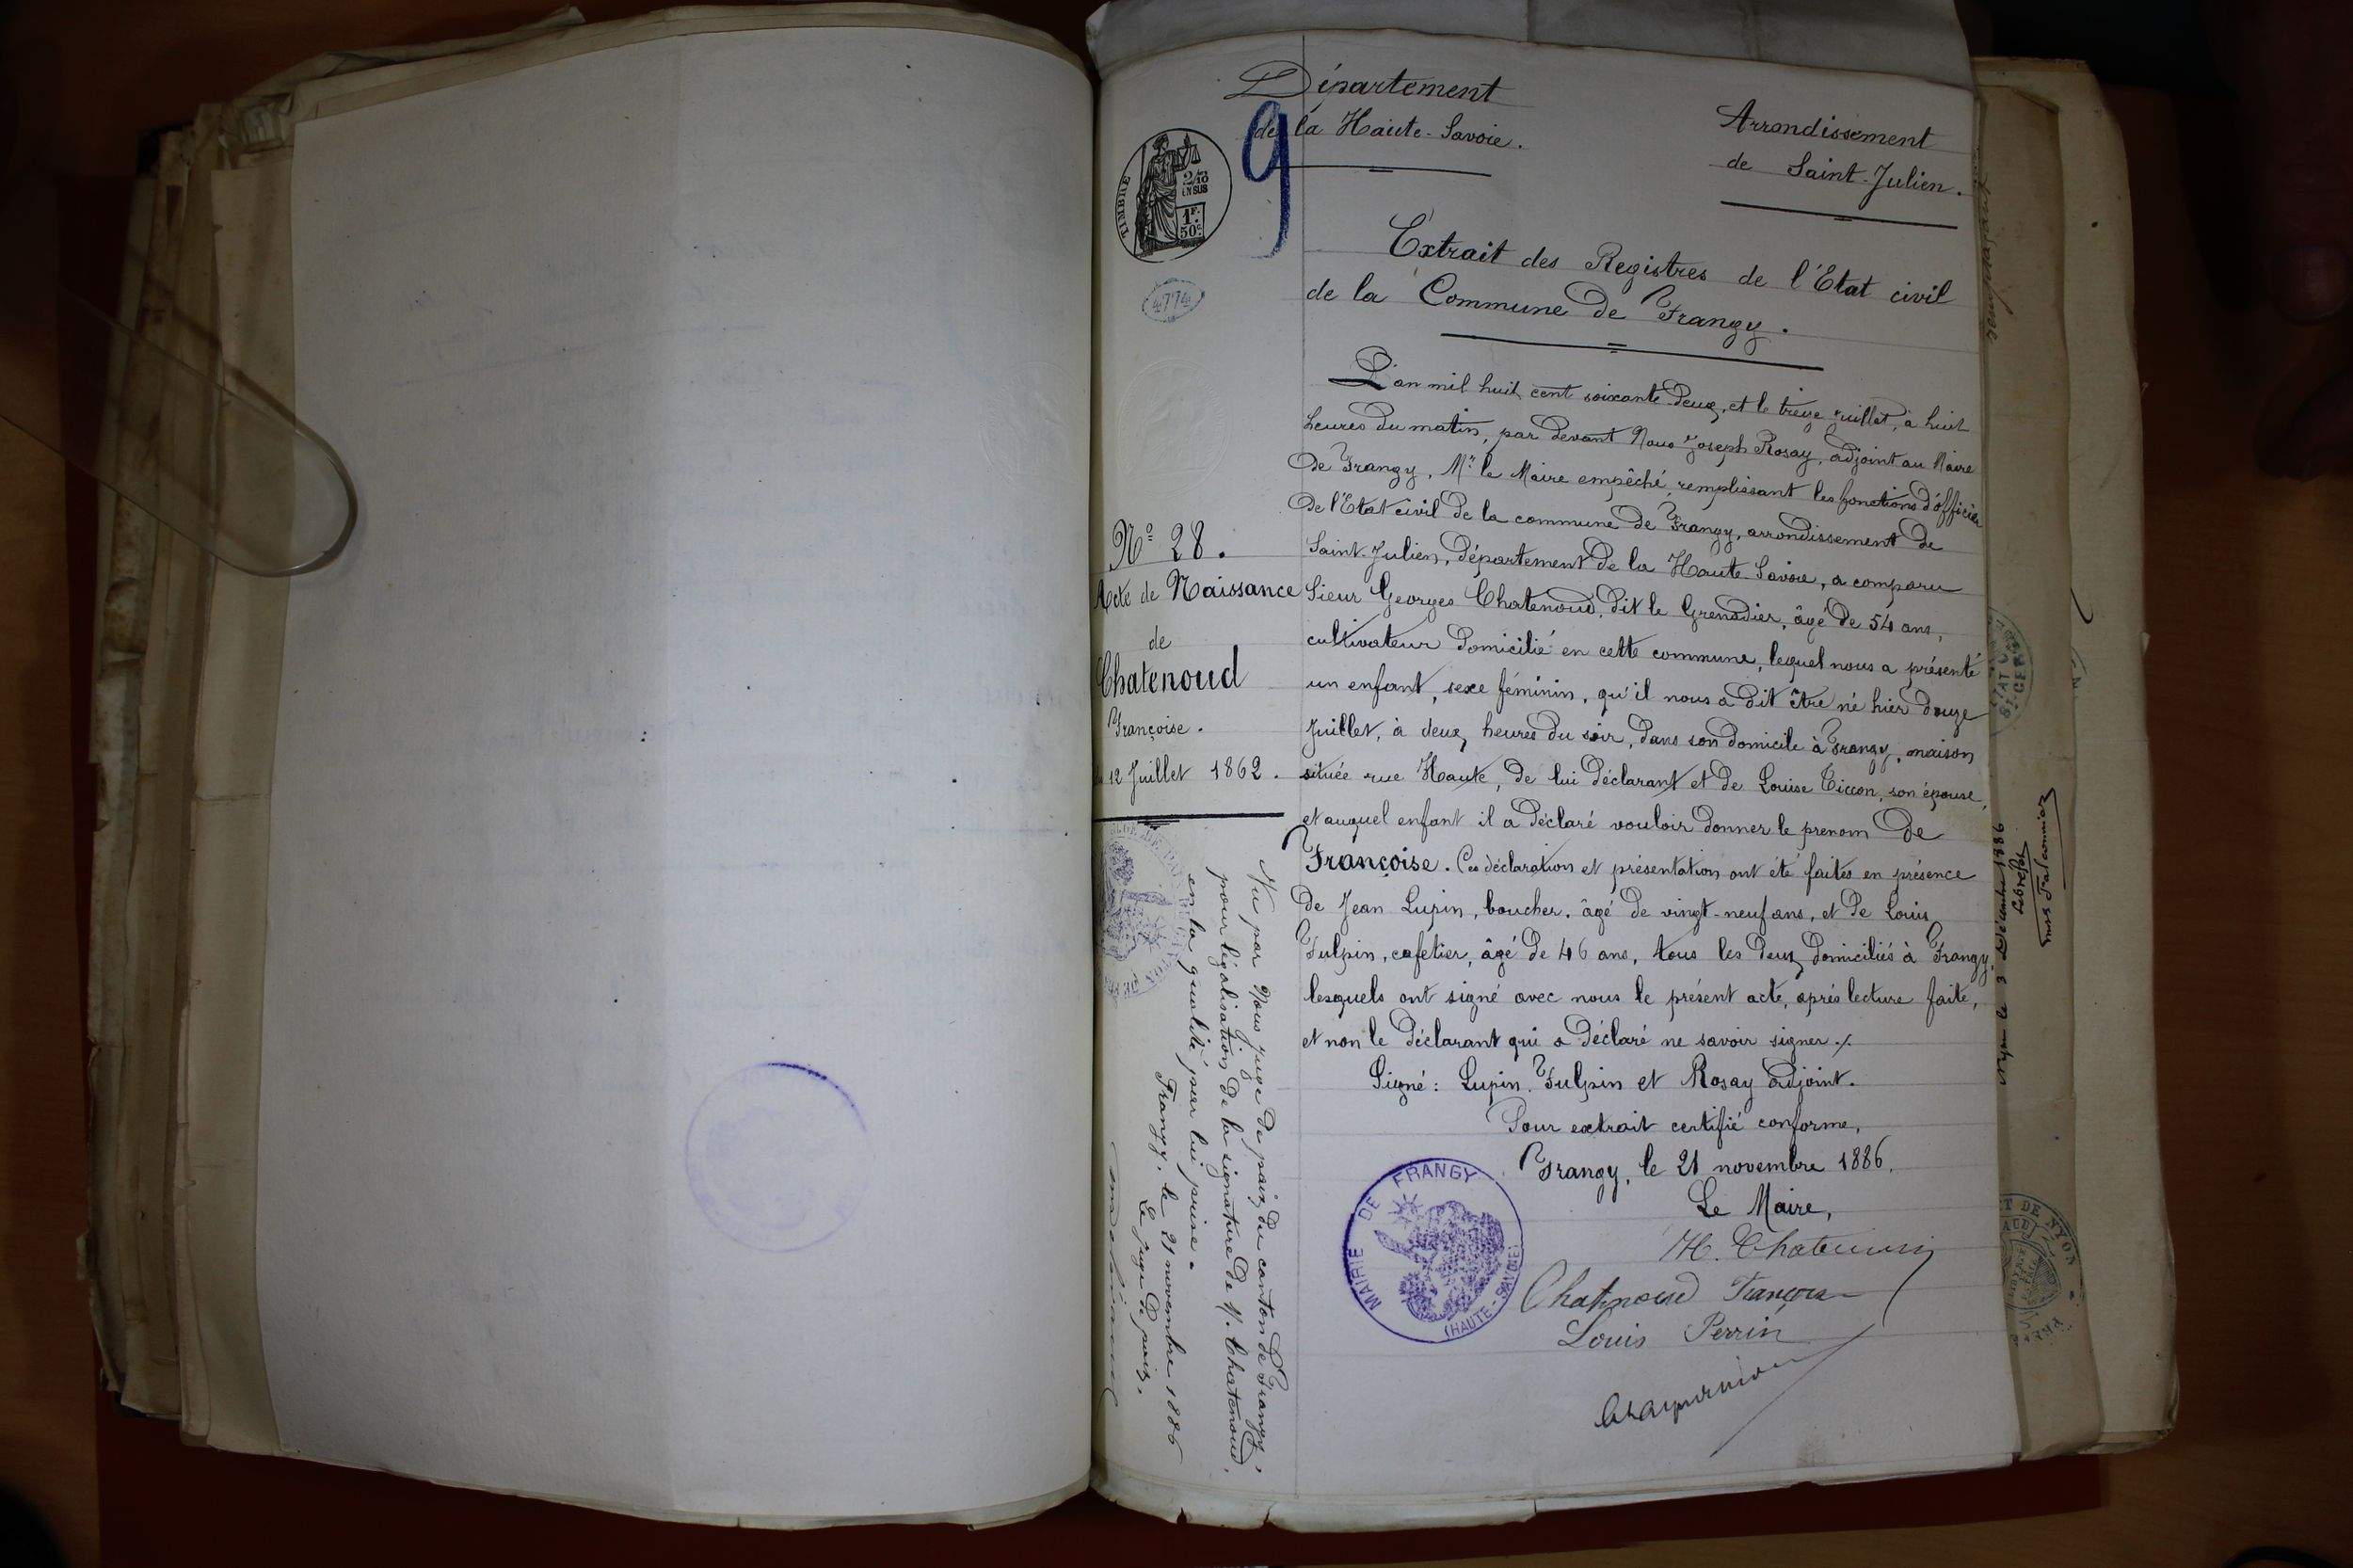 Département
de la Haute-Savoie.
Arrondissement
de Saint-Julien.
9
TIMBRE
2/10
EN SUS
1F.
50c
4774
Extrait des Registres de l'Etat civil
de la Commune de Frangy.
L'an mil huit cent soixante-deux, et le treize juillet, à huit
heures du matin, par devant Nous Joseph Rosay, adjoint au Maire
de Frangy, Mr. le Maire empêché, remplissant les fonctions d'officier
de l'Etat civil de la commune de Frangy, arrondissement de
Saint-Julien, département de la Haute-Savoie, a comparu
Sieur Georges Chatenoud, dit le Grenadier, âgé de 54 ans,
cultivateur domicilié en cette commune, lequel nous a présenté
un enfant, sexe féminin, qu'il nous a dit être né hier douze
Juillet, à deux heures du soir, dans son domicile à Frangy, maison
située rue Haute, de lui déclarant et de Louise Ticcon, son épouse,
et auquel enfant il a déclaré vouloir donner le prenom de
Françoise. Ces déclaration et présentation ont été faites en présence
de Jean Lupin, boucher, âgé de vingt-neuf ans, et de Louis
Fulpin, cafetier, âgé de 46 ans, tous les deux domiciliés à Frangy,
lesquels ont signé avec nous le présent acte, après lecture faite,
et non le déclarant qui a déclaré ne savoir signer ./.
Signé: Lupin, Fulpin et Rosay adjoint.
Pour extrait certifié conforme,
Frangy, le 21 novembre 1886.
Le Maire,
Chatenoud Françoise
Louis Perrin
MAIRIE DE FRANGY
(HAUTE-SAVOIE)
No 28.
Acte de Naissance
de
Chatenoud
Françoise.
12 Juillet 1862.
Vu par Nous juge de paix du canton de Frangy,
pour légalisation de la signature de M. Chatenoud,
en la qualité par lui prise.
Frangy, le 21 novembre 1886
Le juge de paix,
le 3 Décembre 1886
Le Préfet
ET DE NYON